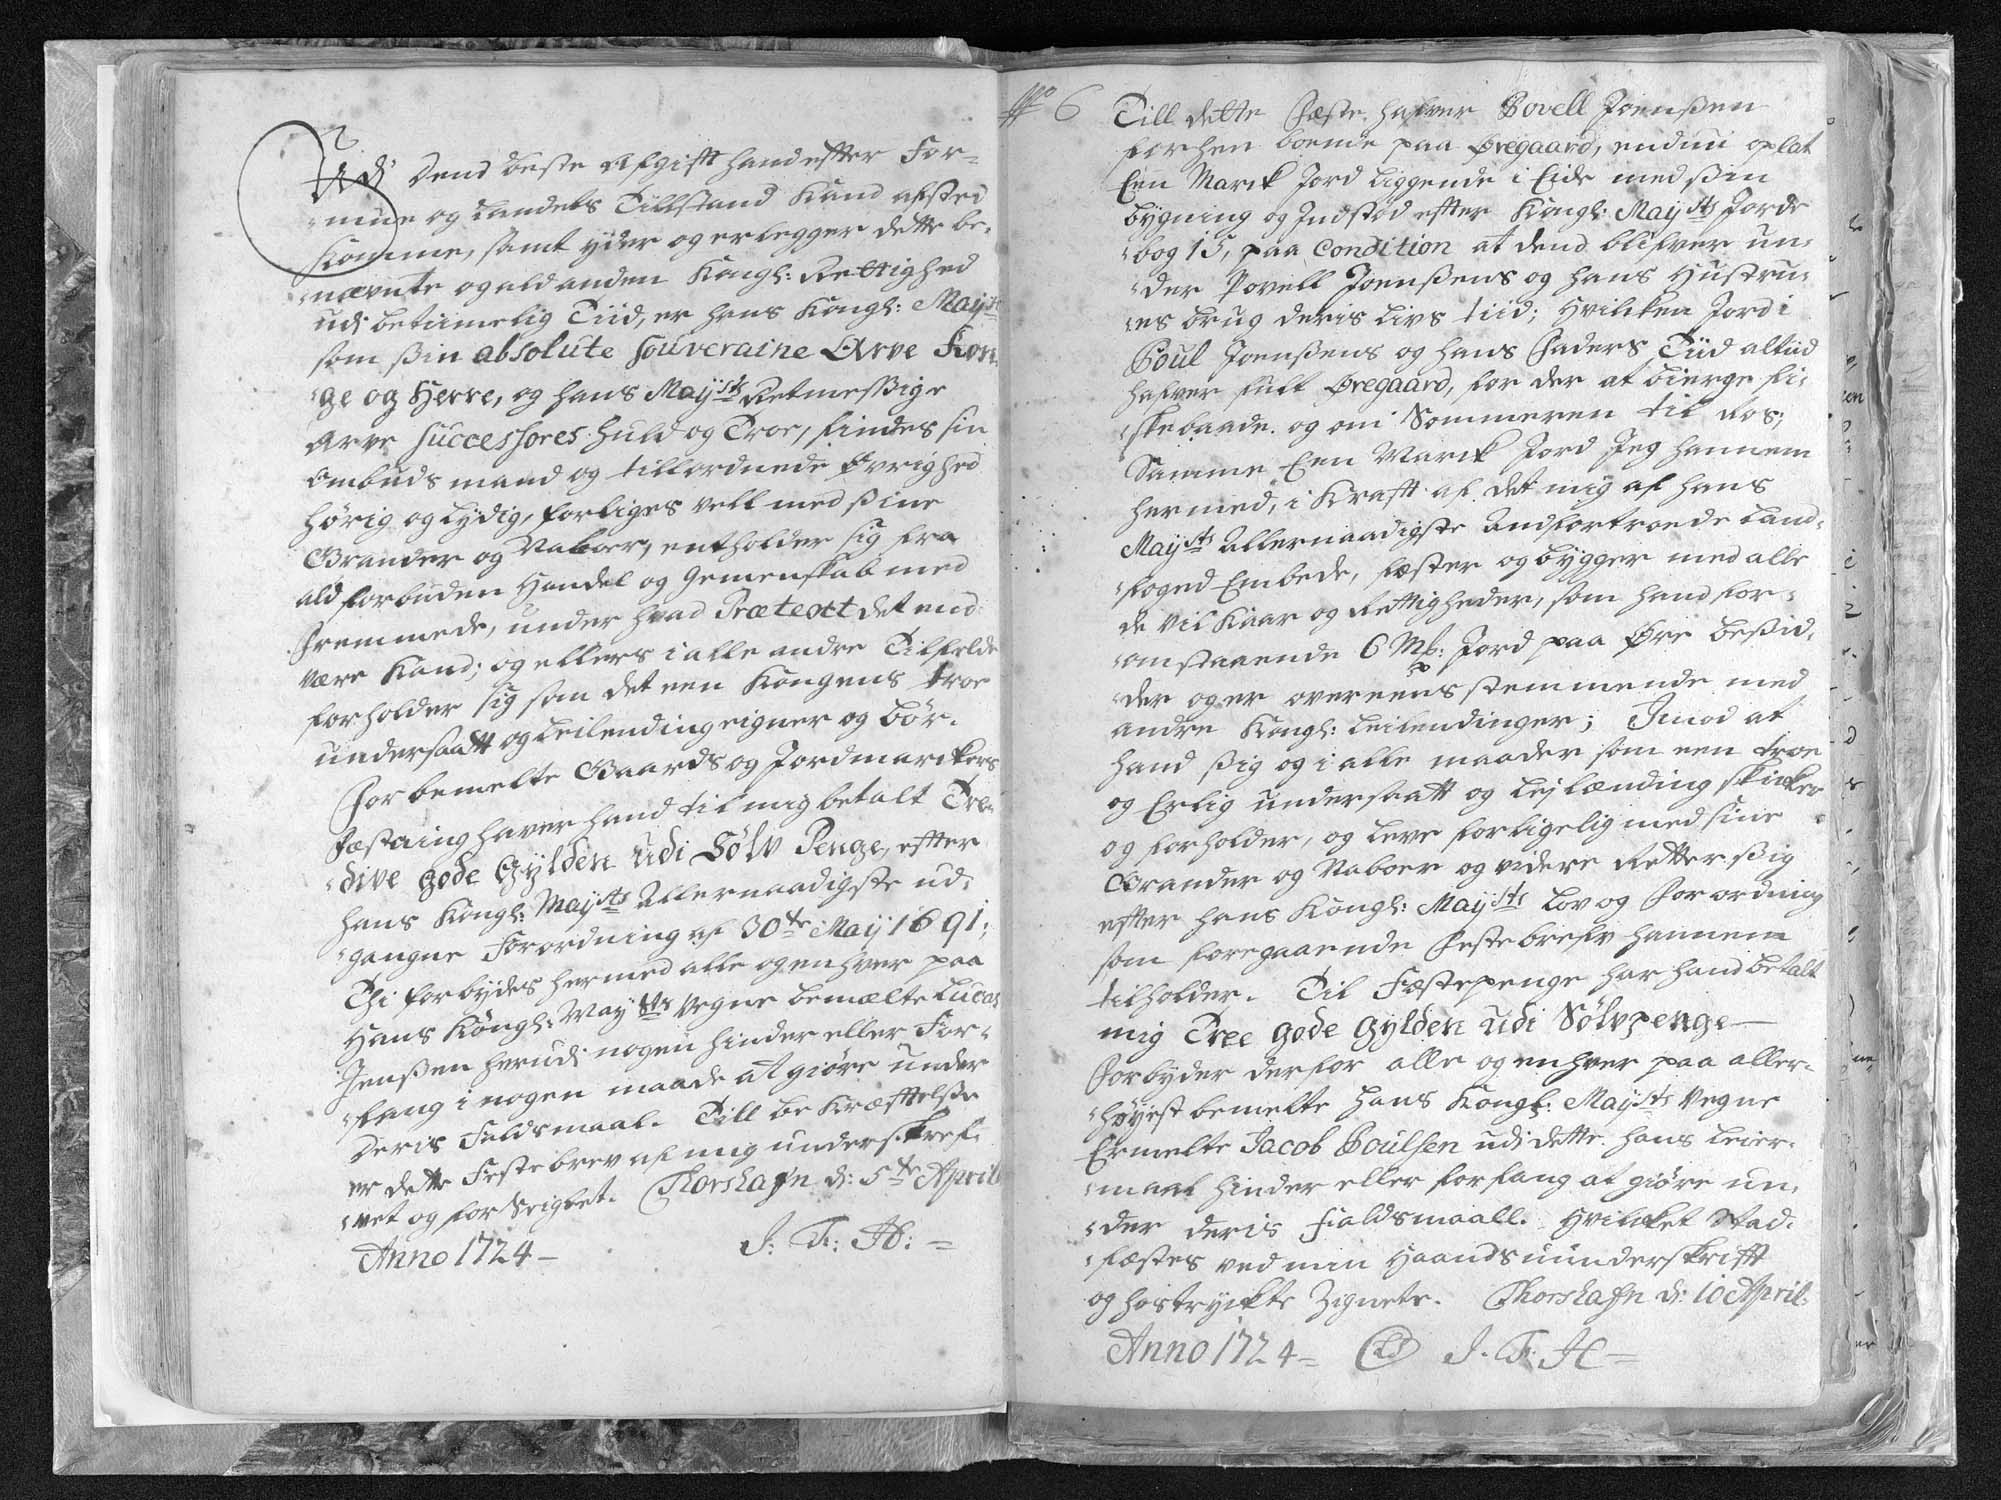 Udi dend beste Afgifft hand effter For-
-mue og Landets Tillstand Kand afsted
Komme, samt yder og erlegger dette be-
-nævnte og ald anden Kongl: Rettighed
udi betimelig Tiid, er hans Kongl: Mayts
som ßin absolute souveraine Arve Kon-
-ge og Herre, og hans Mayts Retmeßige
Arve successores huld og Troe, findes sin
Ombuds mand og tillordnede Øvrighed
hörig og Lydig, forliges vell med ßine
Grander og Naboer, entholder sig fra
ald forbuden Handel og gemenskab med
fremmede, under hvad Prætext det end
være Kand; og ellers i alle andre Tilfelde
forholder sig som det een Kongens troe
undersaatt og Leilending eigner og bör.
For bemelte Gaards og Jordmarckers
Fæstning haver hand til mig betalt Tre-
-dive gode Gylden udi Sølv Penge, effter
hans Kongl: Mayts Allernaadigste ud-
-gangne Forordning af 30te Maij 1691;
Thi forbydes hermed alle og enhver paa
Hans Kongl: Mayts Vegne bemælte Lucas
Jenßen herudi nogen hinder eller For-
-fang i nogen maade at giöre under
Deris Faldsmaal. Till be Kræfftelße
er dette Festebrev af mig underskref-
-vet og forseiglet. Thorshafn d: 5te April
Anno 1724 - J: F: H: =
No 6
Till dette Fæste hafver Povell Joenßen
forhen boende paa Øregaard, endnu oplat
Een Marck Jord liggende i Eide med ßin
bygning og Indstød effter Kongl: Mayts Jorde
-bog 15, paa Condition at dend blifver un-
-der Povell Joenßens og hans Hustru-
-es brug deris Livs tiid; hvilcken Jord i
Poul Joenßens og hans Faders Tiid altiid
hafver fult Øregaard, for der at bierge fi-
-skebaade og om Sommeren til Roes;
Samme Een Marck Jord Jeg hannem
hermed, i Krafft af det mig af hans
Mayts Allernaadigste Anfortroede Land-
-foged Embede, fæster og bygger med alle
de Vilkaar og Rettigheder, som hand for-
-omstaaende 6 Mk: Jord paa Øre beßid-
-der og er overeens stemmende med
andre Kongl: Leilendinger; Imod at
hand ßig og i alle maader som een troe
og Erlig undersaatt og Lejlænding skicker
og forholder, og leve forligelig med sine
Grander og Naboer og videre Retter ßig
effter hans Kongl: Mayts Lov og Forordning
som foregaaende Festebrefv hannem
tilholder. Til Fæstepenge har hand betalt
mig Tree gode gylden udi Sölvpenge -
Forbyder derfor alle og enhver paa aller-
-høyest bemelte Hans Kongl: Mayts Vegne
Ermelte Jacob Poulsen udi dette hans Leier-
-maal hinder eller forfang at giöre un-
-der deris Fialdsmaall. Hvilcket Stad-
-fæstes ved min Haands underskrifft
og hostryckte Zignete. Thorshafn d: 10 April
Anno 1724 = LS J. F: H =